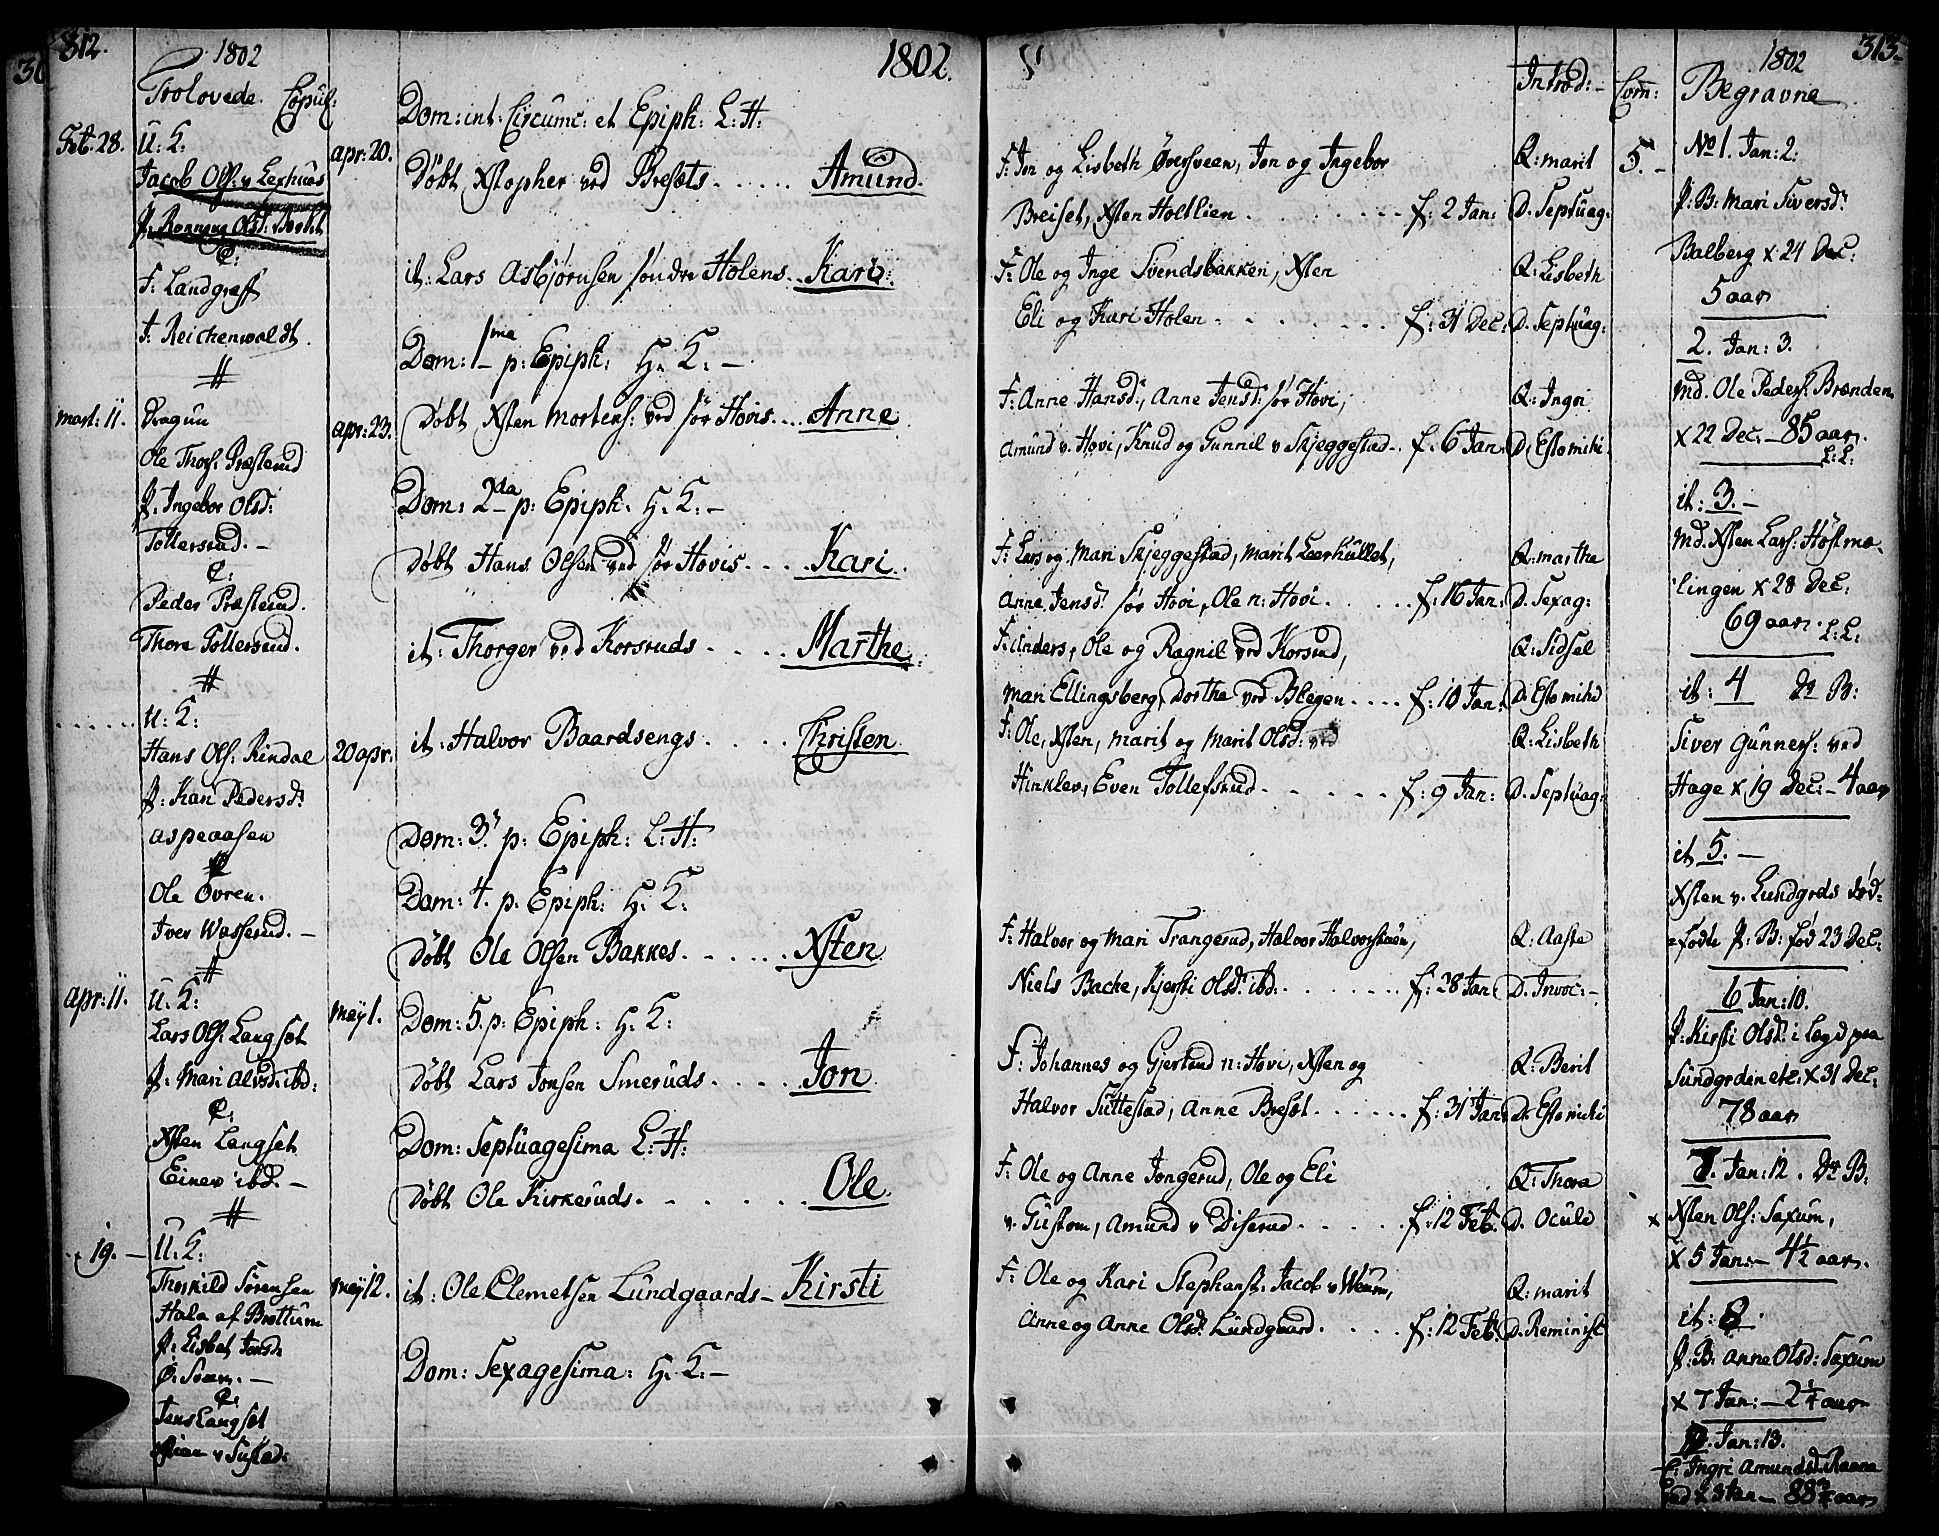 312.
1802
Trolovede. Copul:
Feb. 28. U: K:
Jacob Ols: v Lerhuus
P. Ronnoug Olsd:
C:
F. Landgraff
F. Reichenwaldt.
#
mart: 11. Dragun
Ole Thors: Præsterud
P. Ingebor Olsd:
Tollersrud. –
C:
Peder Præsterud.
Thore Tollersrud.
#
U: K:
Hans Ols: Rindal
P: Kari Pedersd:
aspeaasen
Ole Övren.
Iver Wasserud. –
#
apr: 11. U: K:
Lars Ols: Langset
P: Mari Alvsd: ibd:
C:
Xsten Langset
Einer ibd. –
#
19. – U. K:
Thorkild Sörensen
Hala af Brøttum
P: Lisbet Jonsd:
Ø: Soum. –
C:
Jens Langset
apr: 20.
apr: 23.
20 apr:
may 1.
may 12.
1802.
Dom: int: Circumc: et Epiph: L: H:
Døbt Xstopher ved Bresets . . . . . Amund.
it: Lars Asbjørnsen söndre Holens . . Kari:
Dom: 1ma p: Epiph: H. K: –
Døbt Xsten Mortens: ved sør Hovis . . . Anne
Dom: 2da p: Epiph: H. K: –
Døbt Hans Olsen ved sør Hovis . . . . Kari.
it: Thorger ved Korsruds . . . . Marthe.
it: Halvor Baardsengs . . . . Christen
Dom: 3. p: Epiph: L: H:
Dom: 4. p: Epiph: H. K:
Døbt Ole Olsen Bakkes . . . . . Xsten
Dom: 5. p: Epiph: H. K:
Døbt Lars Jonsen Smeruds . . . . Jon
Dom: Septuagesima L: H:
Døbt Ole Kirkeruds . . . . . . Ole.
it: Ole Clemetsen Lundgaards – Kirsti
Dom: Sexagesima: H. K: –
Introd: –
F: Jon og Lisbeth Översveen, Jon og Ingebor Q: marit
Breiset, Xsten Holtlien . . . . . . . f: 2 Jan: D. Septuag:
F: Ole og Inge Svendsbakken, Xsten Q: Lisbeth
Eli og Kari Holen . . . . . . . f: 31 Dec: D. Septuag:
F: Anne Hansd:, Anne Jensd: sør Hovi, Q: Ingri
Amund v. Hovi, Knud og Gunnil v Skjeggestad – f. 6 Jan: D. Estomihi.
F: Lars og Mari Skjeggestad, Marit Leerhullet, Q: marthe
Anne Jensd: sør Hovi, Ole n: Hovi . . . . . f: 16 Jan: D. Sexag:
F: Anders, Ole og Ragnil ved Korsrud, Q: Sidsel
Mari Ellingsberg, Dorthe ved Blegen . . . . f: 10 Jan. D. Estomihi
F: Ole, Xsten, marit og Marit Olsd: ved Q: Lisbeth
Hinklev, Even Tollefsrud . . . . . f: 9 Jan: D. Septuag:
F: Halvor og Mari Trangerud, Halvor Halvorstuen, Q: Aaste
Niels Backe, Kjersti Olsd: ibd: . . . . . . . f: 28 Jan: D. Invoc: –
F: Johannes og Gjertrud n: Hovi, Xsten og Q: Berit
Halvor Suttestad, Anne Breset . . . . . . f: 31 Jan: D. Estomihi
F: Ole og Anne Jongerud, Ole og Eli Q: Thora
v. Gustom, Amund v Diserud . . . . . . f: 12 Feb: D. Oculi
F: Ole og Kari Stephanst: Jacob v Weum, Q: marit
Anne og Anne Olsd: Lundgaard . . . . f: 12 Feb: D. Reminisc
Com:
5. –
313.
1802
Begravne
No 1. Jan: 2:
P: B: Mari Siversd:
Balberg X 24 Dec:
5 aar
2. Jan: 3.
Md. Ole Peders: Brænden
X 22 Dec. – 85 aar.
L: L:
it: 3. –
Md. Xsten Lars: Höstmæ-
lingen X 28 Dec:
69 aar. L: L:
it: 4 Dr B:
Siver Gunners: ved
Hage X 19 Dec: – 4 aar
it 5. –
Xsten v. Lundgrds död-
=födte P: B: föd 23 Dec:
6 Jan: 10.
P: Kirsti Olsd: i Lægd paa
Sundgrden etc: X 31 Dec:
78 aar
7. Jan: 12. Dr B:
x Xsten Ols: Saxum,
X 5 Jan: – 4½ aar.
it: 8.
P: B: Anne Olsd: Saxum
X 7 Jan: – 2¼ aar
Jan: 13.
Ingri Amundsd: